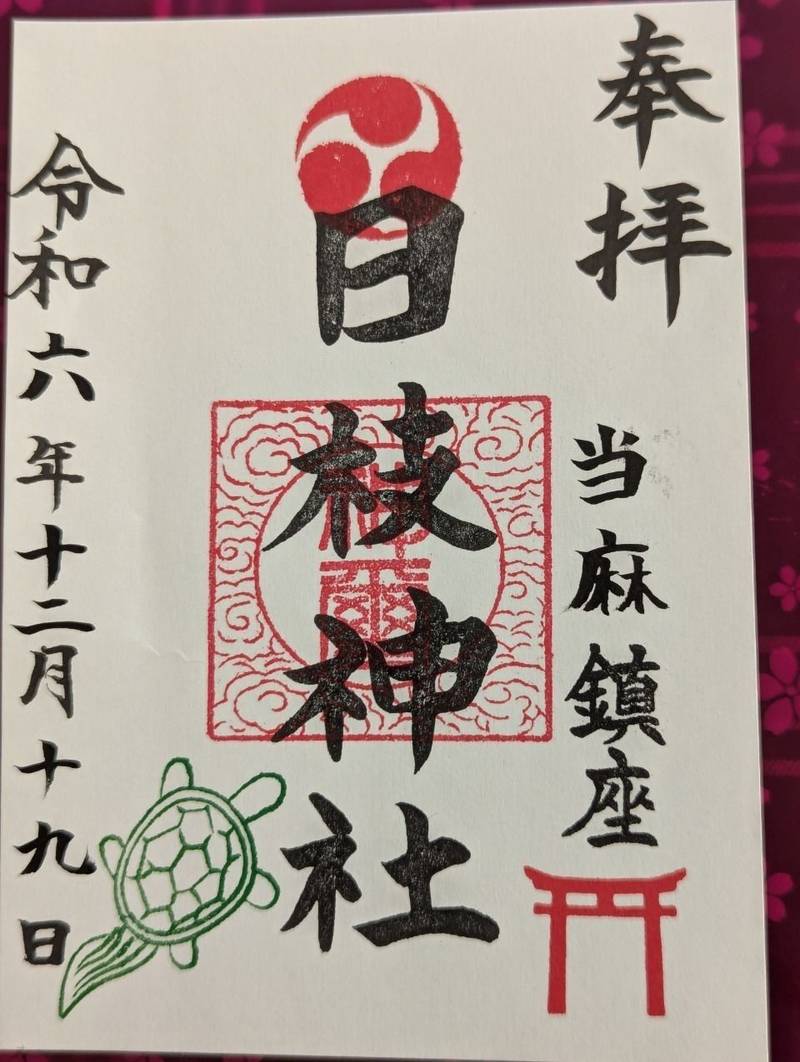 奉拝
当麻鎮座
日枝神社
令和六年十二月十九日